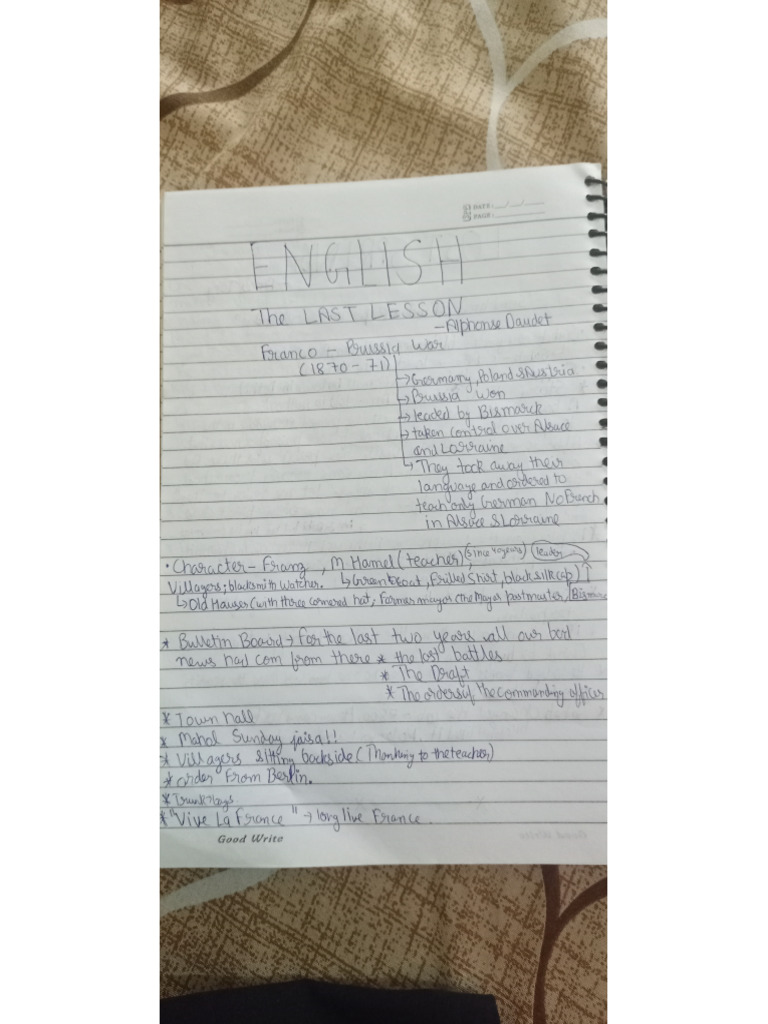 DATE: __/__/__
PAGE:
ENGLISH
The LAST LESSON
- Alphonse Daudet
Franco - Prussia War
(1870 - 71)
→ Germany, Poland & Austria
→ Prussia Won
→ leaded by Bismarck
→ taken control over Alsace
and Lorraine
→ They took away their
language and ordered to
teach only German No French
in Alsace & Lorraine
• Character - Franz, M Hamel (teacher) (since 40 years) leader
Villagers; blacksmith watcher. ↳ Green coat, Frilled Shirt, black silk cap
↳ Old Hauser (with three cornered hat, Former mayor, the Mayor postmaster, Bismarc
* Bulletin Board → for the last two years all our bad
news had com from there * the lost battles
* The Draft
* The orders of the commanding officer
* Town hall
* Mahol Sunday jaisa!!
* Villagers sitting backside (Thanking to the teacher)
* order From Berlin.
* "Vive La France" → long live France.
Good Write